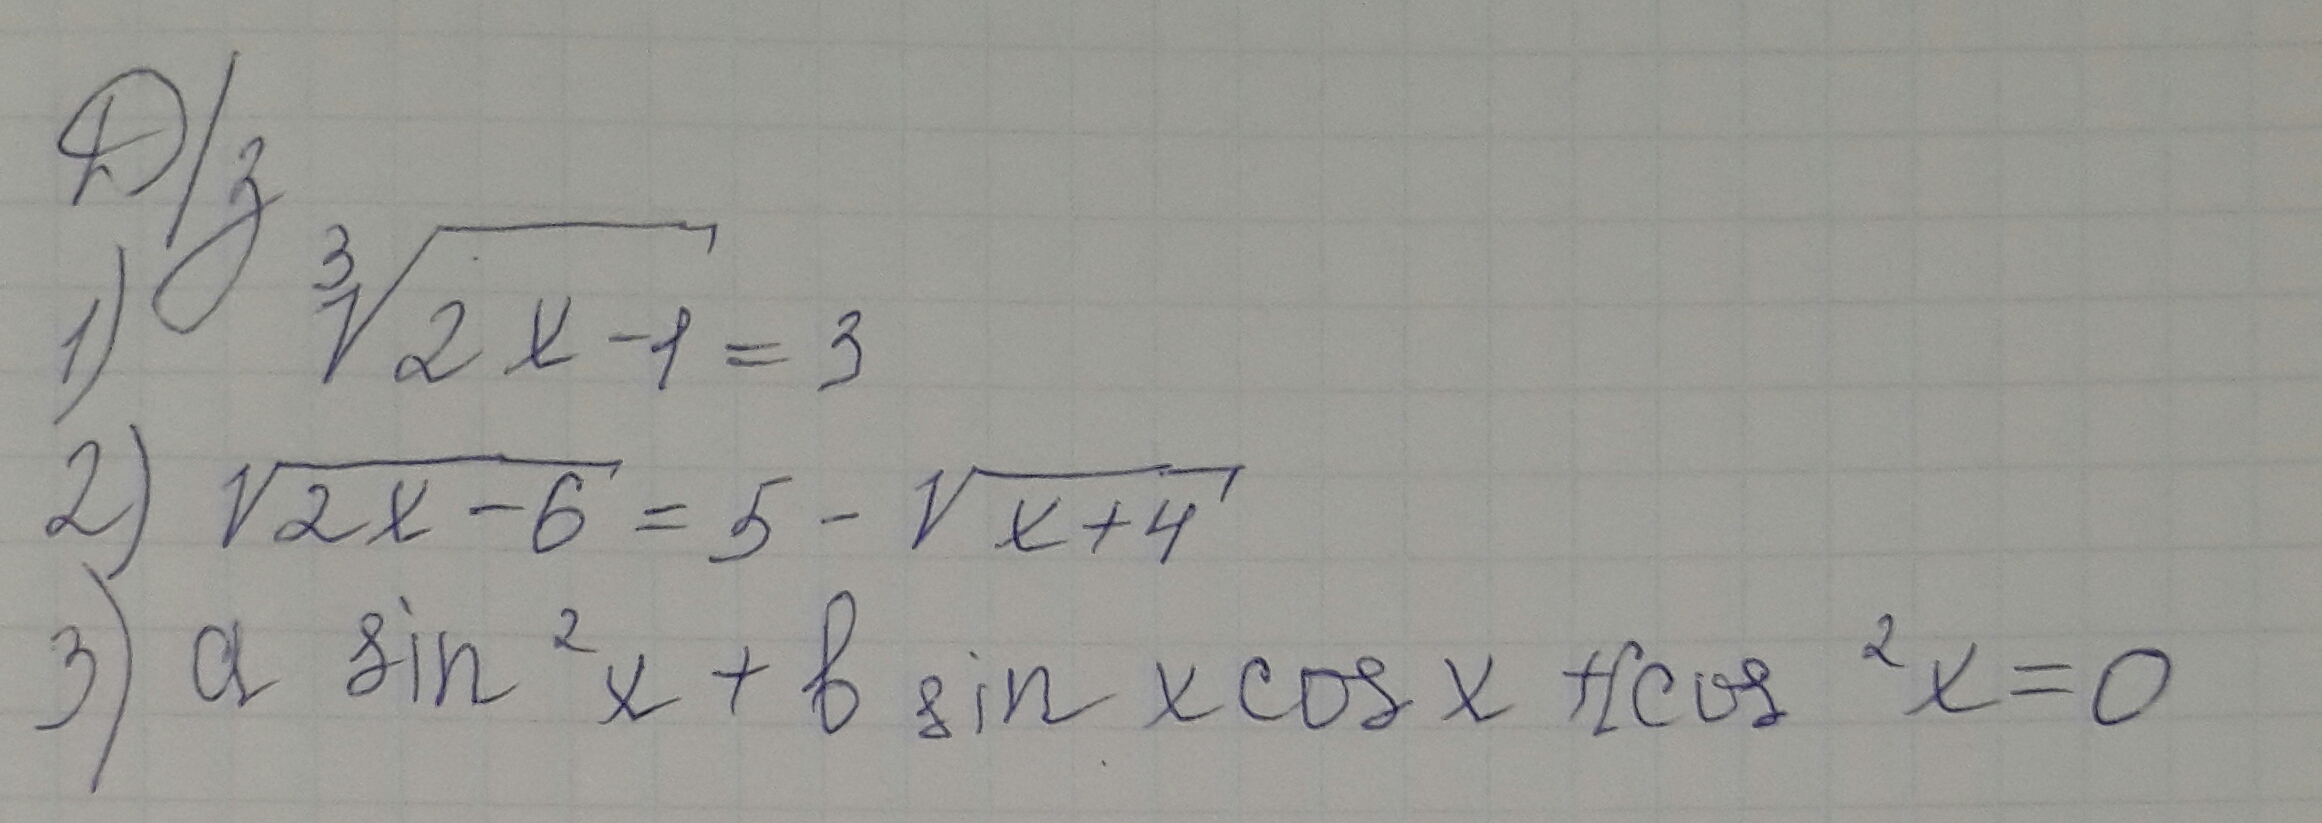 Д/з
1) ∛(2x-1) = 3
2) √(2x-6) = 5 - √(x+4)
3) a sin²x + b sin x cos x + c cos²x = 0